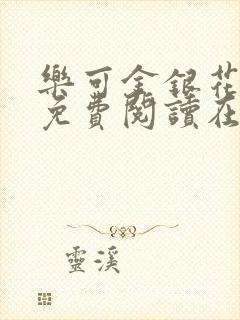 樂可金銀花
免費閱讀在
靈溪